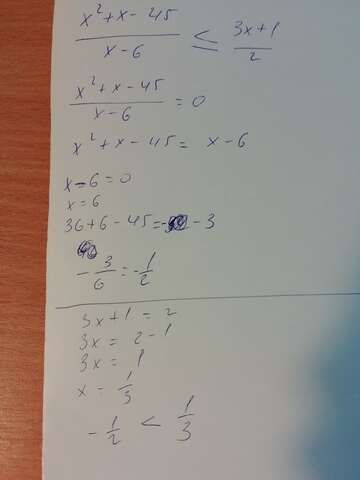 x² + x - 45 / x - 6 ≤ 3x + 1 / 2
x² + x - 45 / x - 6 = 0
x² + x - 45 = x - 6
x - 6 = 0
x = 6
36 + 6 - 45 = - 3
- 3/6 = - 1/2
3x + 1 = 2
3x = 2 - 1
3x = 1
x = 1/3
- 1/2 < 1/3